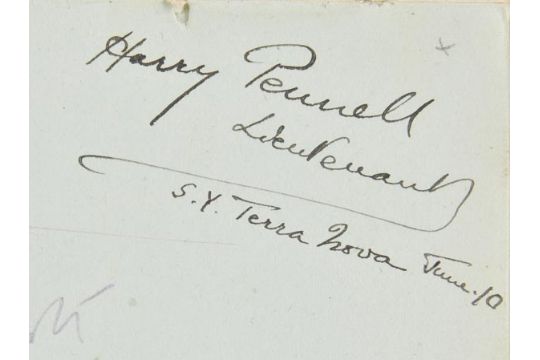 Harry Pennell
Lieutenant
S.Y. Terra Nova June. 10